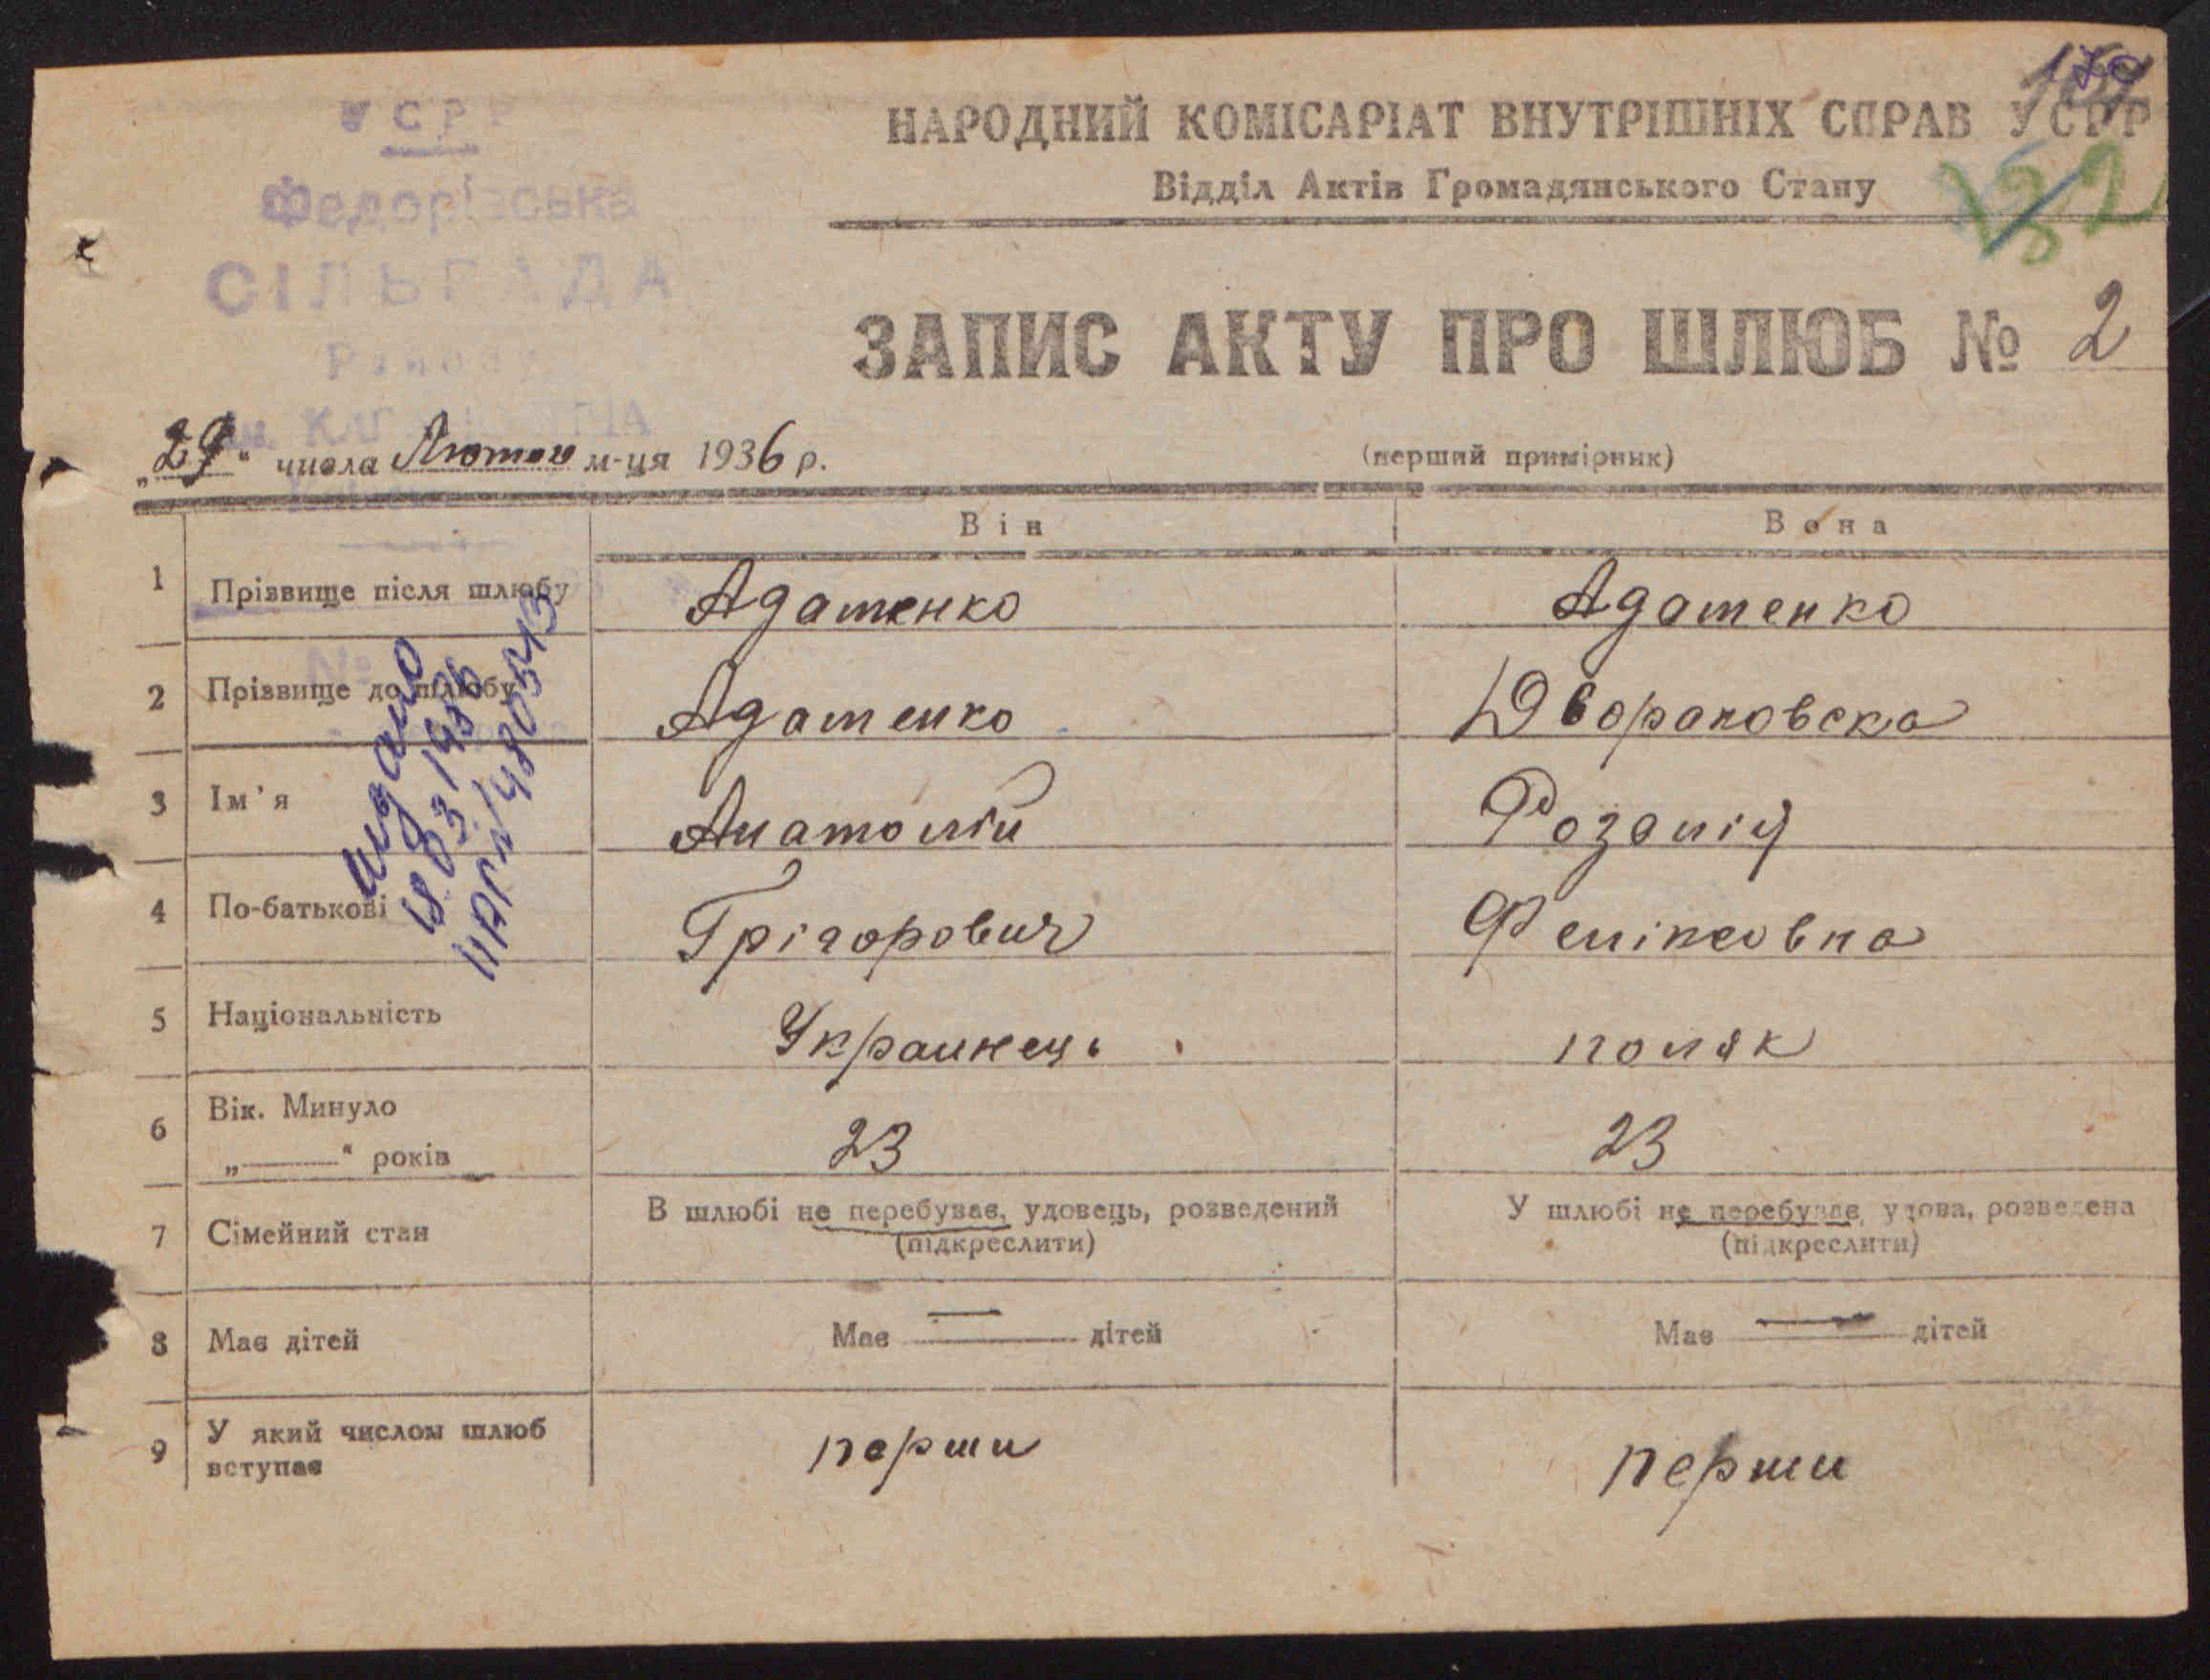 УСРР
Федорівська
СІЛЬРАДА
Району
ім. КАГАНОВИЧА
НАРОДНИЙ КОМІСАРІАТ ВНУТРІШНІХ СПРАВ УСРР
Відділ Актів Громадянського Стану
ЗАПИС АКТУ ПРО ШЛЮБ № 2
числа Лютого м-ця 1936 р.
(перший примірник)
Він Вона
1 Прізвище після шлюбу Адаменко Адаменко
2 Прізвище до шлюбу Адаменко Двораковска
3 Ім'я Анатолій Розалія
4 По-батькові Грігорович Феліксовна
5 Національність Украинець поляк
6 Вік. Минуло
„——“ років 23 23
7 Сімейний стан В шлюбі не перебуває, удовець, розведений У шлюбі не перебуває, удова, розведена
(підкреслити) (підкреслити)
8 Має дітей Має — дітей Має — дітей
9 У який числом шлюб
вступає перши перши
видано